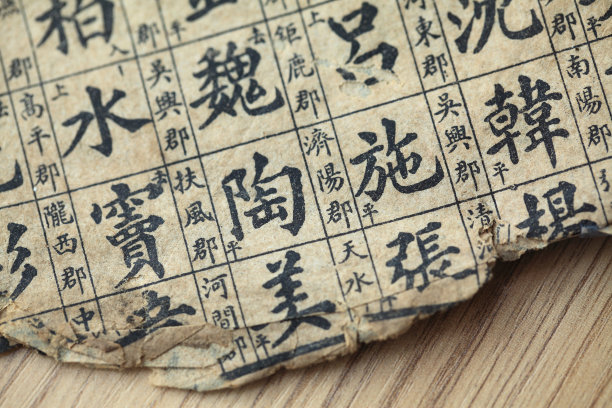 郡
沈
南陽郡
韓 平
楊
河東郡
呂 上
吳興郡
施 平
清河
張 平
鉅鹿郡
魏 去
濟陽郡
陶 平
天水
姜 平
郡
柏 入
吳興郡
水 上
扶風郡
竇 去
河間郡
郡
高平郡
隴西郡
中